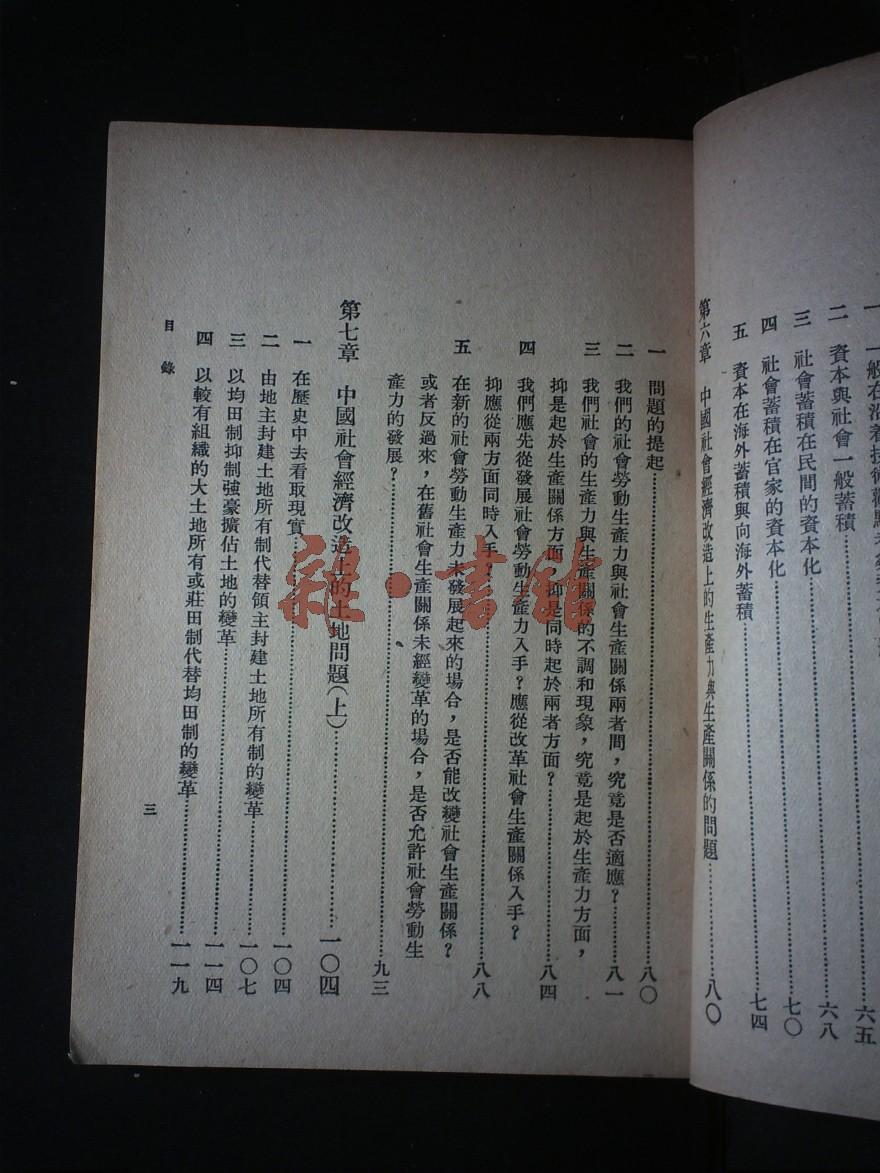 二 資本與社會一般蓄積……六八
三 社會蓄積在民間的資本化……七〇
四 社會蓄積在官家的資本化
五 資本在海外蓄積與向海外蓄積……七四
第六章 中國社會經濟改造上的生產力與生產關係的問題……八〇
一 問題的提起……八〇
二 我們的社會勞動生產力與社會生產關係兩者間，究竟是否適應？……八一
三 我們社會的生產力與生產關係的不調和現象，究竟是起於生產力方面，
抑是起於生產關係方面，抑是同時起於兩者方面？……八四
四 我們應先從發展社會勞動生產力入手？應從改革社會生產關係入手？
抑應從兩方面同時入手？……八八
五 在新的社會勞動生產力未發展起來的場合，是否能改變社會生產關係？
或者反過來，在舊社會生產關係未經變革的場合，是否允許社會勞動生
產力的發展？……九三
第七章 中國社會經濟改造上的土地問題（上）……一〇四
一 在歷史中去看取現實……一〇四
二 由地主封建土地所有制代替領主封建土地所有制的變革……一〇七
三 以均田制抑制強豪擴佔土地的變革……一一四
四 以較有組織的大土地所有或莊田制代替均田制的變革……一一九
目錄
三
雜·書館